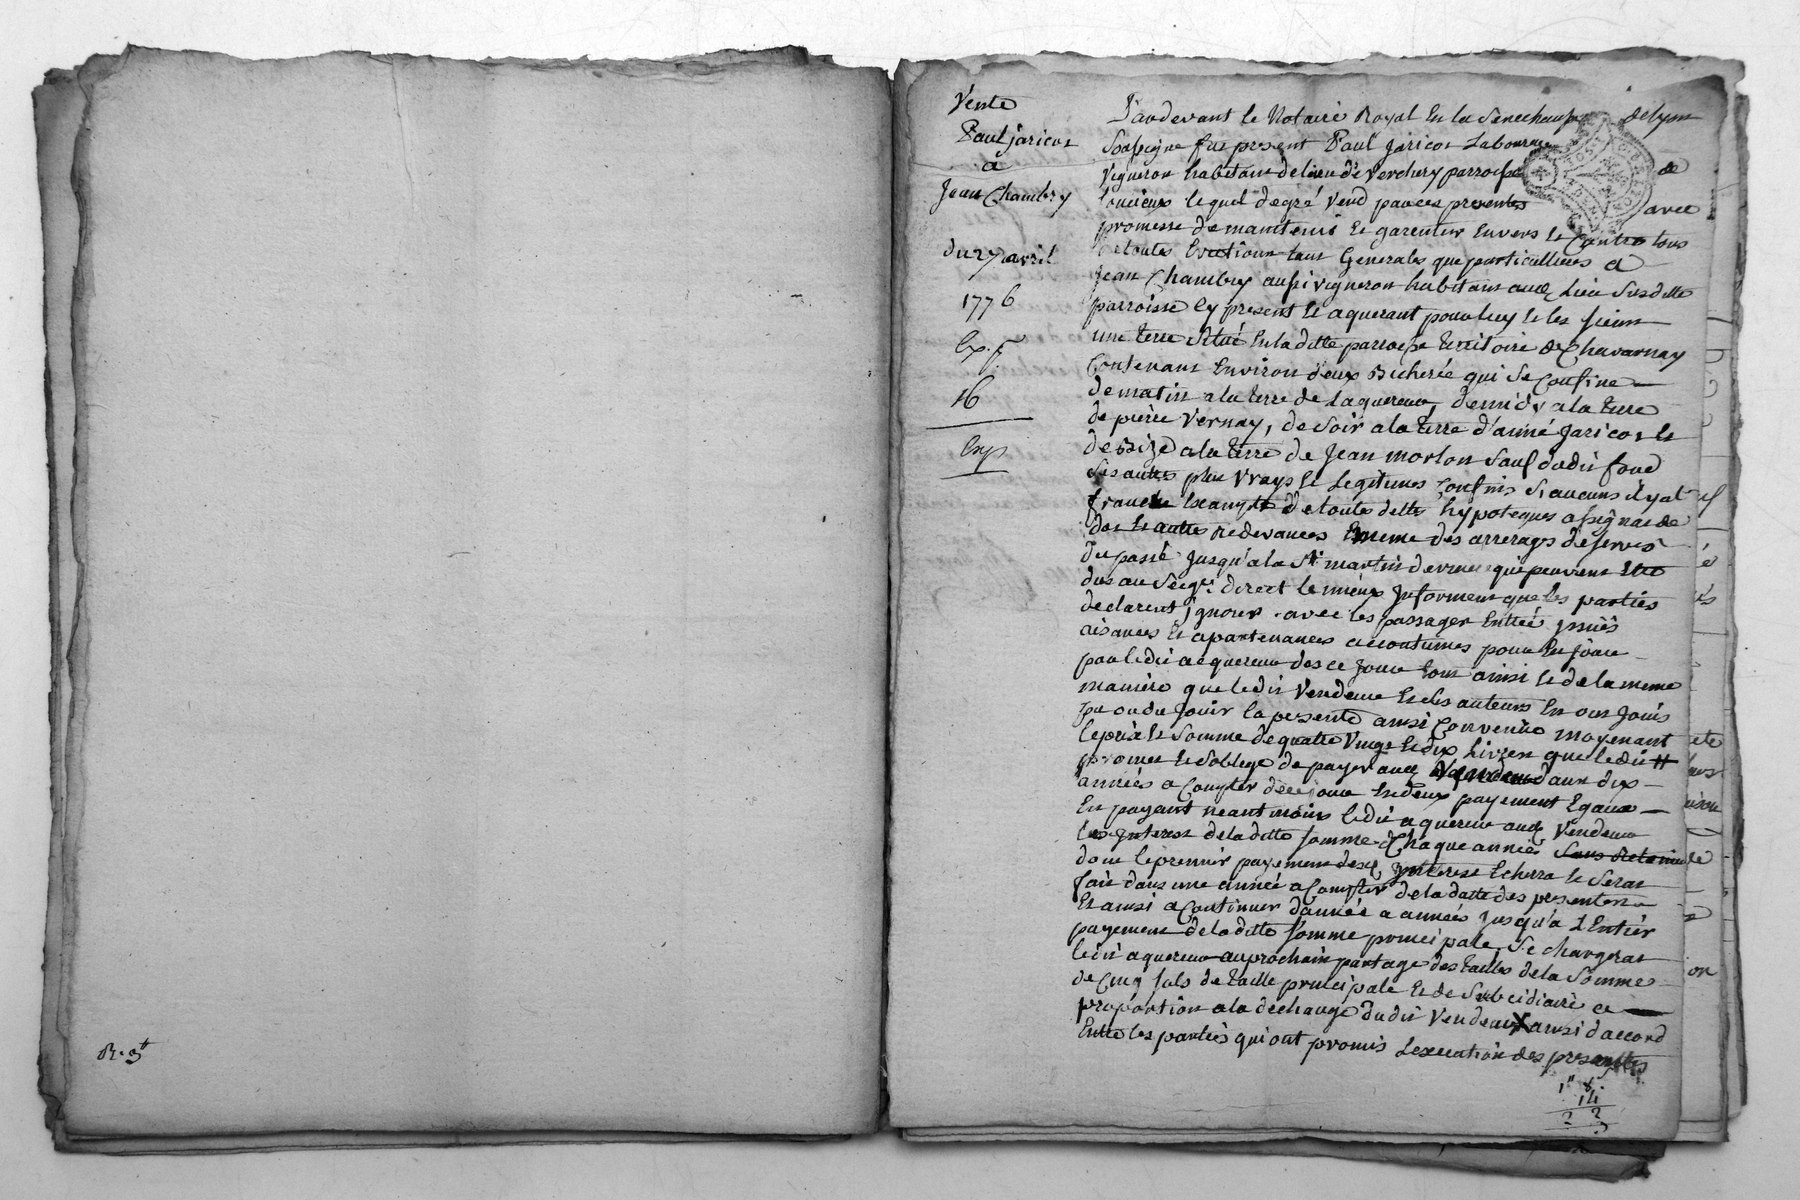 R. 3#
Vente
Paul jaricot
a
Jean Chambry
du 27 avril
1776
Exp. f.
16
Exp
Pardevant le Notaire Royal En la Senechaussée de Lyon
Soussigné fut present Paul Jaricot Laboureur
vigneron habitant du lieu de Verchery parroisse de
lequel de gré Vend par ces presentes avec
promesse de maintenir et garentir Envers et Contre tous
de toutes Evictions tant Generales que particullieres a
Jean Chambry aussi vigneron habitant aud. Lieu Susditte
parroisse Cy present et aquerant pour luy et les siens
une terre Situé En la ditte parroisse territoire de Chavarnay
Contenant Environ deux Bicherée qui Se Confine
de matin a la terre de Laquereur, de midy a la terre
de pierre Vernay, de Soir a la terre d'aimé Jaricot et
de Bize a la terre de Jean morlon Sauf dudit fond
Ses autres plus Vrays et Legitimes Confins Si aucuns il y at
franche Exampte de toute dette hypoteques assignat de
dot et autres redevances Et meme des arrerages de servis
du passé Jusqu'a la St martin derniere que peuvent Etre
dus au Seigr. direct le mieux Informent que les parties
declarent ignorer. avec les passages Entrée issuës
aisances Et apartenances accoutumés pour En Jouir
par ledit acquereur des ce Jour tout ainsi et de la meme
maniere que ledit Vendeur Et Ses auteurs En ont Jouis
pu ou du Jouir la presente ainsi Convenüe moyenant
le prix et Somme de quatre Vingt et dix Livres que ledit #
promet et S'oblige de payer aud. dans dix
années a Compter de ce jour En deux payement Egaux
En payant neant moins ledit aquereur aud. Vendeur
les Interest de la ditte somme Chaque année Sans Retenue
dont le premier payement desd. Interest Echerra et Serat
fait dans une année a Compter de la datte des presentes
Et ainsi a Continuer d'année a années Jusqu'a L'Entier
payement de la ditte Somme principale, Se chargerat
ledit aquereur au prochain partage des tailles de la Somme
de Cinq Sols de taille principale Et de Subcidiaire a
proportion a la decharge dudit Vendeur X ainsi d'accord
Entre les parties qui ont promis L'execution des presentes
1" 8.
14
2 2